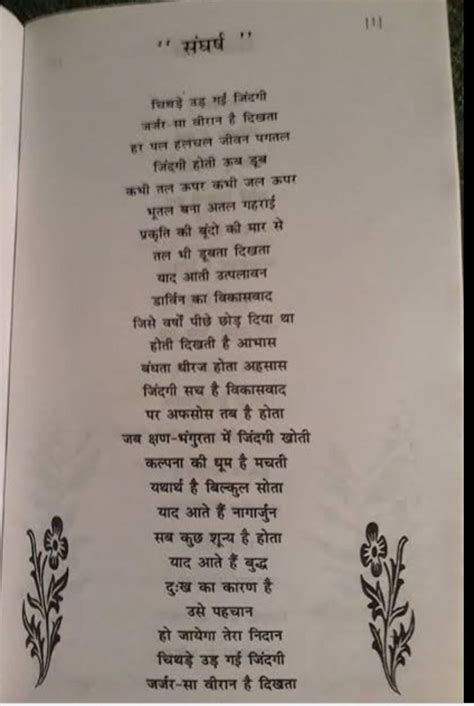 " संघर्ष "
चिथड़े उड़ गई जिंदगी
जर्जर-सा वीरान है दिखता
हर पल हलचल जीवन पगतल
जिंदगी होती ऊब डूब
कभी तल ऊपर कभी जल ऊपर
भूतल बना अतल गहराई
प्रकृति की बूंदो की मार से
तल भी डूबता दिखता
याद आती उत्पलावन
डार्विन का विकासवाद
जिसे वर्षों पीछे छोड़ दिया था
होती दिखती है आभास
बंधता धीरज होता अहसास
जिंदगी सच है विकासवाद
पर अफसोस तब है होता
जब क्षण-भंगुरता में जिंदगी खोती
कल्पना की धूम है मचती
यथार्थ है बिल्कुल सोता
याद आते हैं नागार्जुन
सब कुछ शून्य है होता
याद आते हैं बुद्ध
दुःख का कारण है
उसे पहचान
हो जायेगा तेरा निदान
चिथड़े उड़ गई जिंदगी
जर्जर-सा वीरान है दिखता